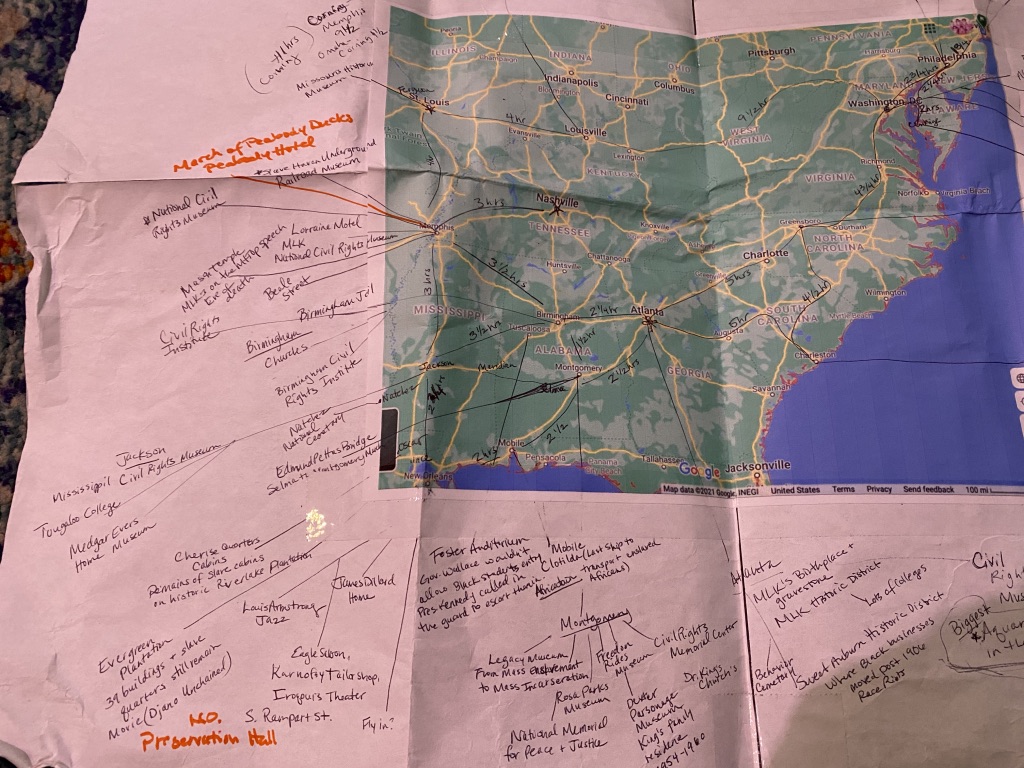 Corning
Memphis
9 1/2
Omaha
Corning 1 1/2
Missouri History
Museum
March of Peabody Ducks
Peabody Hotel
*Slave Haven Underground
Railroad Museum
*National Civil
Rights Museum
Lorraine Motel
MLK
National Civil Rights Museum
Mason Temple
MLK's on the Mttop speech
Eve of
death
Beale
Street
Birmingham Jail
Civil Rights
Institute
Birmingham
Churches
Birmingham Civil
Rights Institute
Natchez
National
Cemetary
Edmund Pettus Bridge
Selma to Montgomery March
Jackson
Mississippi Civil Rights Museum
Tougaloo College
Medgar Evers
Home Museum
Cherise Quarters
Cabins
Remains of slave cabins
on historic Riverlake Plantation
James Dillard
Home
Louis Armstrong
Jazz
Evergreen
Plantation
39 buildings + slave
quarters still remain
Movie (Django Unchained)
Eagle Saloon,
Karnofsky Tailor shop,
Iroquois Theater
S. Rampart st.
Fly in?
N.O.
Preservation Hall
Foster Auditorium
Gov. Wallace wouldn't
allow Black students entry
Pres Kennedy called in
the guard to escort them.
Mobile
Clotilda (last ship to
transport enslaved
Africans)
Africatown
Montgomery
Legacy Museum
From Mass enslavement
to Mass Incarceration
Freedom
Rides
Museum
Civil Rights
Memorial Center
Rosa Parks
Museum
Dr. King's
Church's
National Memorial
for Peace + Justice
Dexter
Parsonage
Museum
King's family
residence
1954-1960
Atlanta
MLK's Birthplace +
gravestone
MLK Historic District
Lots of Colleges
Sweet Auburn Historic District
Where Black businesses
moved post 1906
Race Riots
Cemetery
Civil
Righ
Mus
Biggest
*Aquar
in th
ILLINOIS
Peoria
Champaign
INDIANA
Indianapolis
Bloomington
OHIO
Columbus
Cincinnati
Pittsburgh
PENNSYLVANIA
Harrisburg
Philadelphia
NEW JERSEY
MARYLAND
Washington DC
DELAWARE
2hrs
9 1/2 hr
WEST
VIRGINIA
Ferguson
St. Louis
4hr
Evansville
Louisville
Lexington
KENTUCKY
Richmond
VIRGINIA
Norfolk
Virginia Beach
3 hrs
Nashville
Memphis
TENNESSEE
Knoxville
Greensboro
Durham
NORTH
CAROLINA
Charlotte
Huntsville
Chattanooga
Greenville
5hrs
3 1/2 hrs
3 hrs
MISSISSIPPI
3 1/2 hr
Tuscaloosa
Birmingham
2 1/4 hr
Atlanta
5hr
Augusta
SOUTH
CAROLINA
4 1/2 hr
Wilmington
Myrtle Beach
Charleston
ALABAMA
1 1/2 hr
Montgomery
2 1/2 hrs
GEORGIA
Savannah
Jackson
Meridian
Selma
Natchez
Mobile
2 1/2
2 hrs
Pensacola
Panama
City Beach
Tallahassee
Jacksonville
New Orleans
Google
Map data ©2021 Google, INEGI United States Terms Privacy Send feedback 100 mi